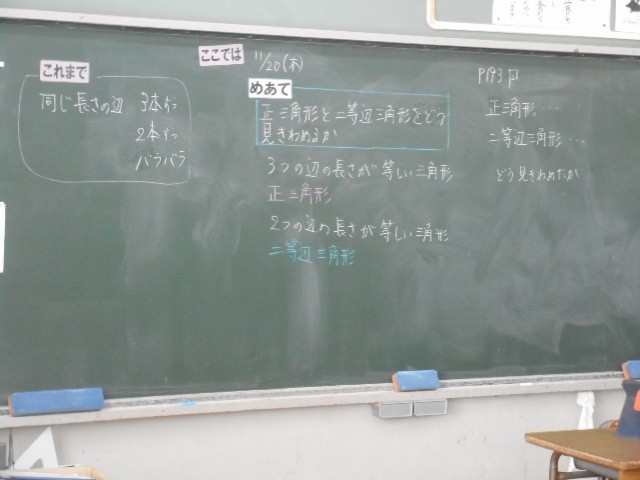 これまで
同じ長さの辺 3本ずつ
2本ずつ
バラバラ
ここでは
11/20(木)
めあて
正三角形と二等辺三角形をどう
見きわめるか
3つの辺の長さが等しい三角形
正三角形
2つの辺の長さが等しい三角形
二等辺三角形
正三角形…
二等辺三角形…
どう見きわめたか